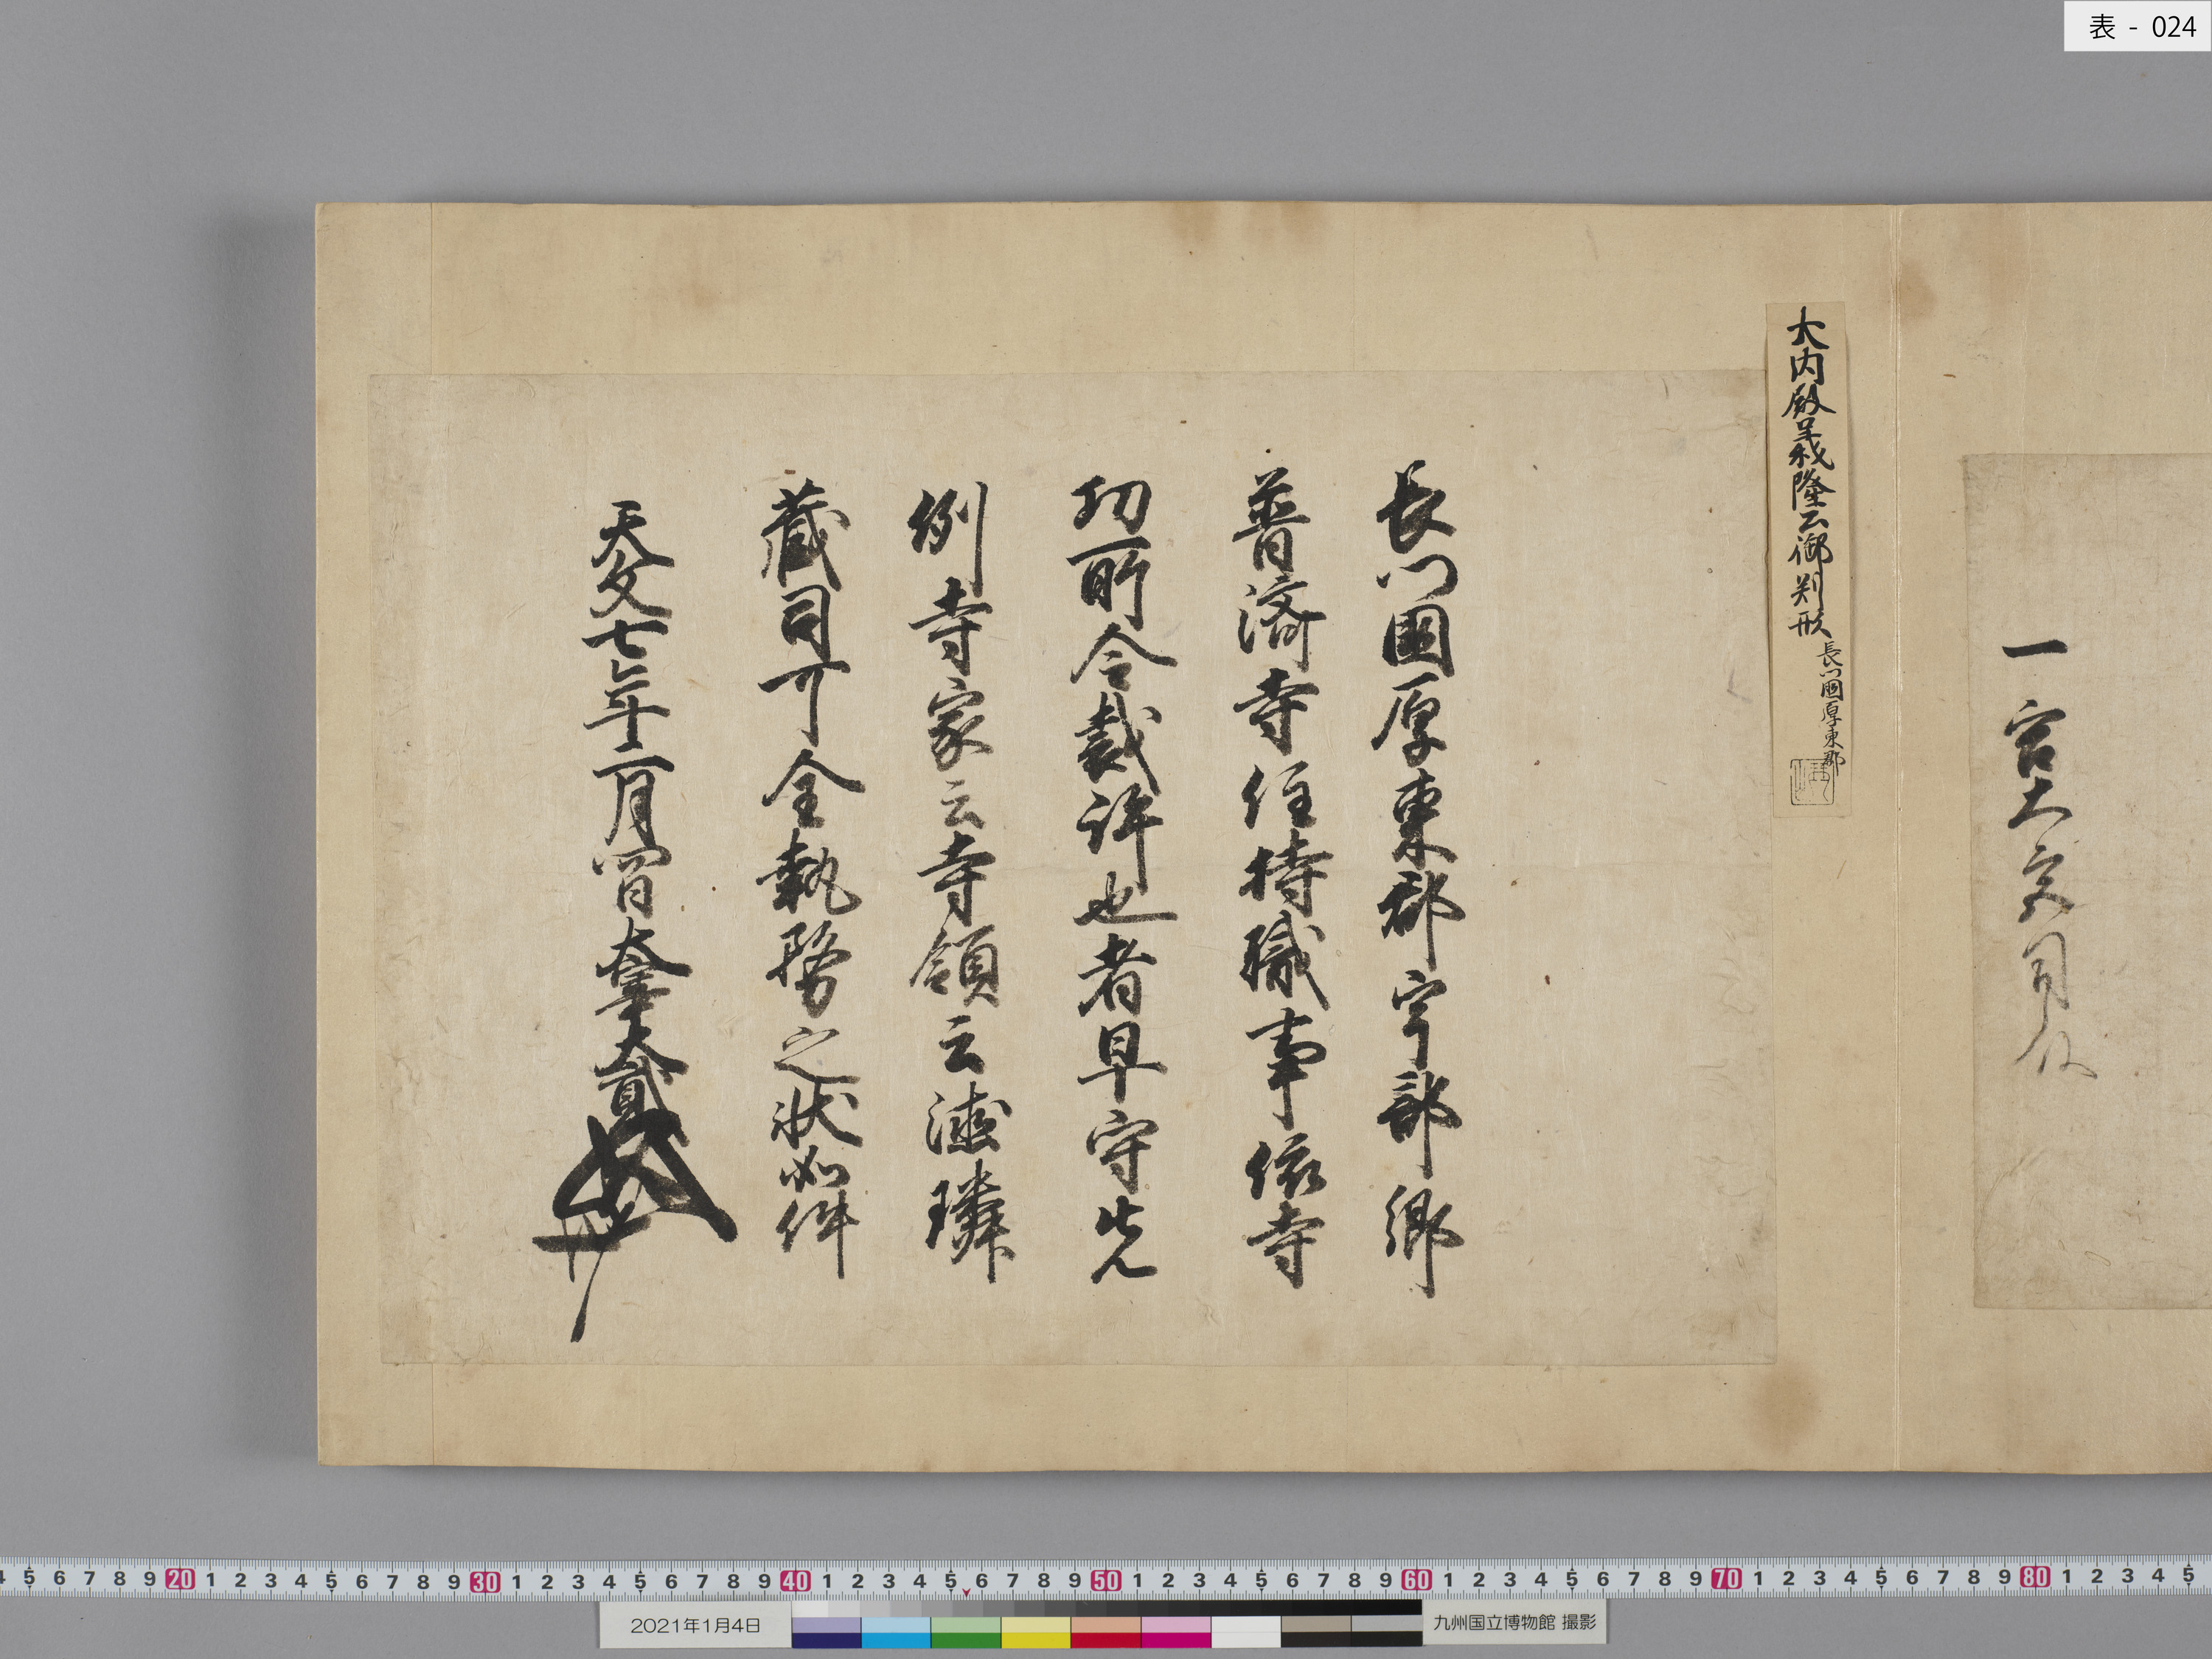 表 - 024
一宮大宮司殿
大内殿義隆公御判形 長門國厚東郡
長門國厚東郡宇部郷
普濟寺住持職事依寺
功所令裁許也者早守先
例寺家云寺領云漣璘
藏司可全執務之状如件
天文七年二月四日 大宰大貳
4 5 6 7 8 9 20 1 2 3 4 5 6 7 8 9 30 1 2 3 4 5 6 7 8 9 40 1 2 3 4 5 6 7 8 9 50 1 2 3 4 5 6 7 8 9 60 1 2 3 4 5 6 7 8 9 70 1 2 3 4 5 6 7 8 9 80 1 2 3 4 5
2021年1月4日
九州国立博物館 撮影